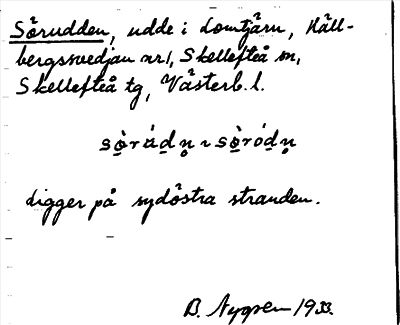 Sörudden, udde i Lomtjärn, Häll-
bergssvedjan nr 1, Skellefteå sn,
Skellefteå tg, Västerb. l.
sò̠rúd̠n̥ ~ sò̠ród̠n̥
digger på sydöstra stranden.
B. Nygren 1933.